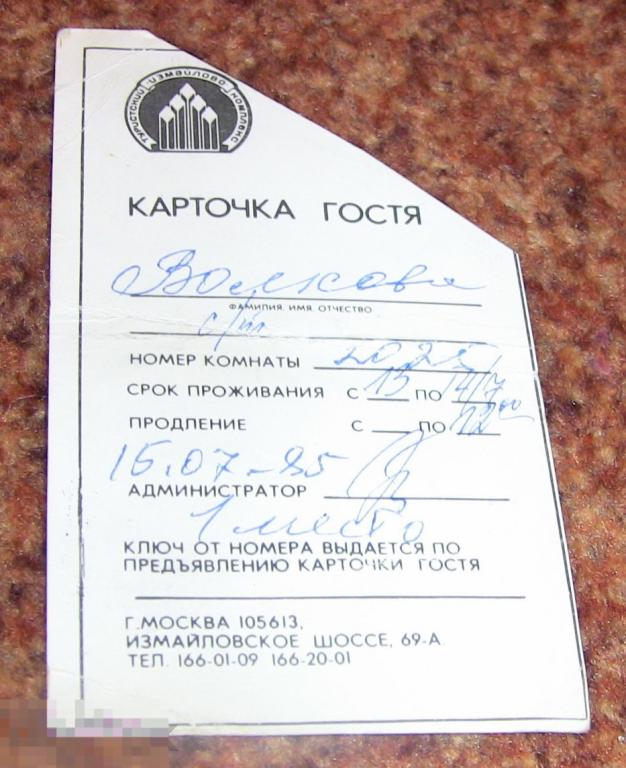 ТУРИСТСКИЙ ИЗМАЙЛОВО КОМПЛЕКС
КАРТОЧКА ГОСТЯ
Волкова
ФАМИЛИЯ ИМЯ ОТЧЕСТВО
НОМЕР КОМНАТЫ 2025
СРОК ПРОЖИВАНИЯ С 13 ПО 14/7
ПРОДЛЕНИЕ С ПО 12 00
15.07-85
АДМИНИСТРАТОР
1 место
КЛЮЧ ОТ НОМЕРА ВЫДАЕТСЯ ПО
ПРЕДЪЯВЛЕНИЮ КАРТОЧКИ ГОСТЯ
Г. МОСКВА 105613,
ИЗМАЙЛОВСКОЕ ШОССЕ, 69-А.
ТЕЛ. 166-01-09 166-20-01